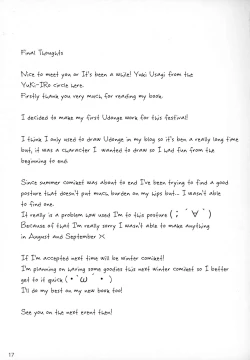 Final Thoughts
Nice to meet you or It's been a while! Yuki Usagi from the
YuKi-IRo circle here.
Firstly thank you very much for reading my book.
I decided to make my first Udonge work for this festival!
I think I only used to draw Udonge in my blog so it's ben a really long time
but, it was a character I wanted to draw so I had fun from the
beginning to end.
Since summer comiket was about to end I've been trying to find a good
posture that doesn't put much burden on my hips but... I wasn't able
to find one.
It really is a problem how used I'm to this posture (；´∀｀)
Because of that I'm really sorry I wasn't able to make anything
in August and September ×
If I'm accepted next time will be winter comiket!
I'm planning on having some goodies this next winter comiket so I better
get to it quick (・´ω｀・)
I'll do my best on my new book too!
See you on the next event then!
17